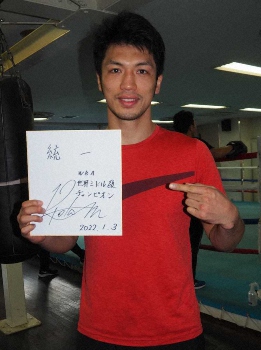 統一
世界ミドル級
チャンピオン
2022.1.3